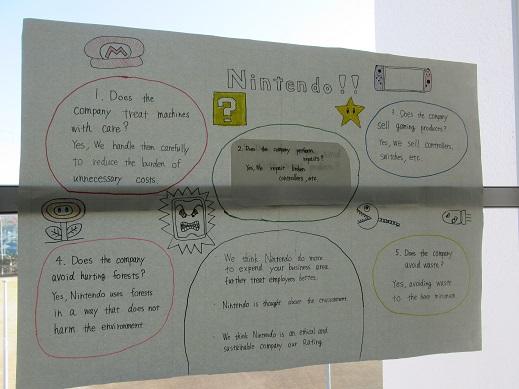 M
Nintendo!!
?
1. Does the
company treat machines
with care?
Yes, We handle then carefully
to reduce the burden of
unnecessary costs.
2. Does the company perform
repairs?
Yes, We repair broken
controllers, etc.
3. Does the company
sell gaming products?
Yes, we sell controllers,
switches, etc.
4. Does the company
avoid hurting forests?
Yes, Nintendo uses forests
in a way that does not
harm the environment
5. Does the company
avoid waste?
Yes, avoiding waste
to the bare minimum
We think Nintendo do more
to expend your business area
further treat employees better.
· Nintendo is thought about the environment.
· We think Nintendo is an ethical and
sustainable company our Rating